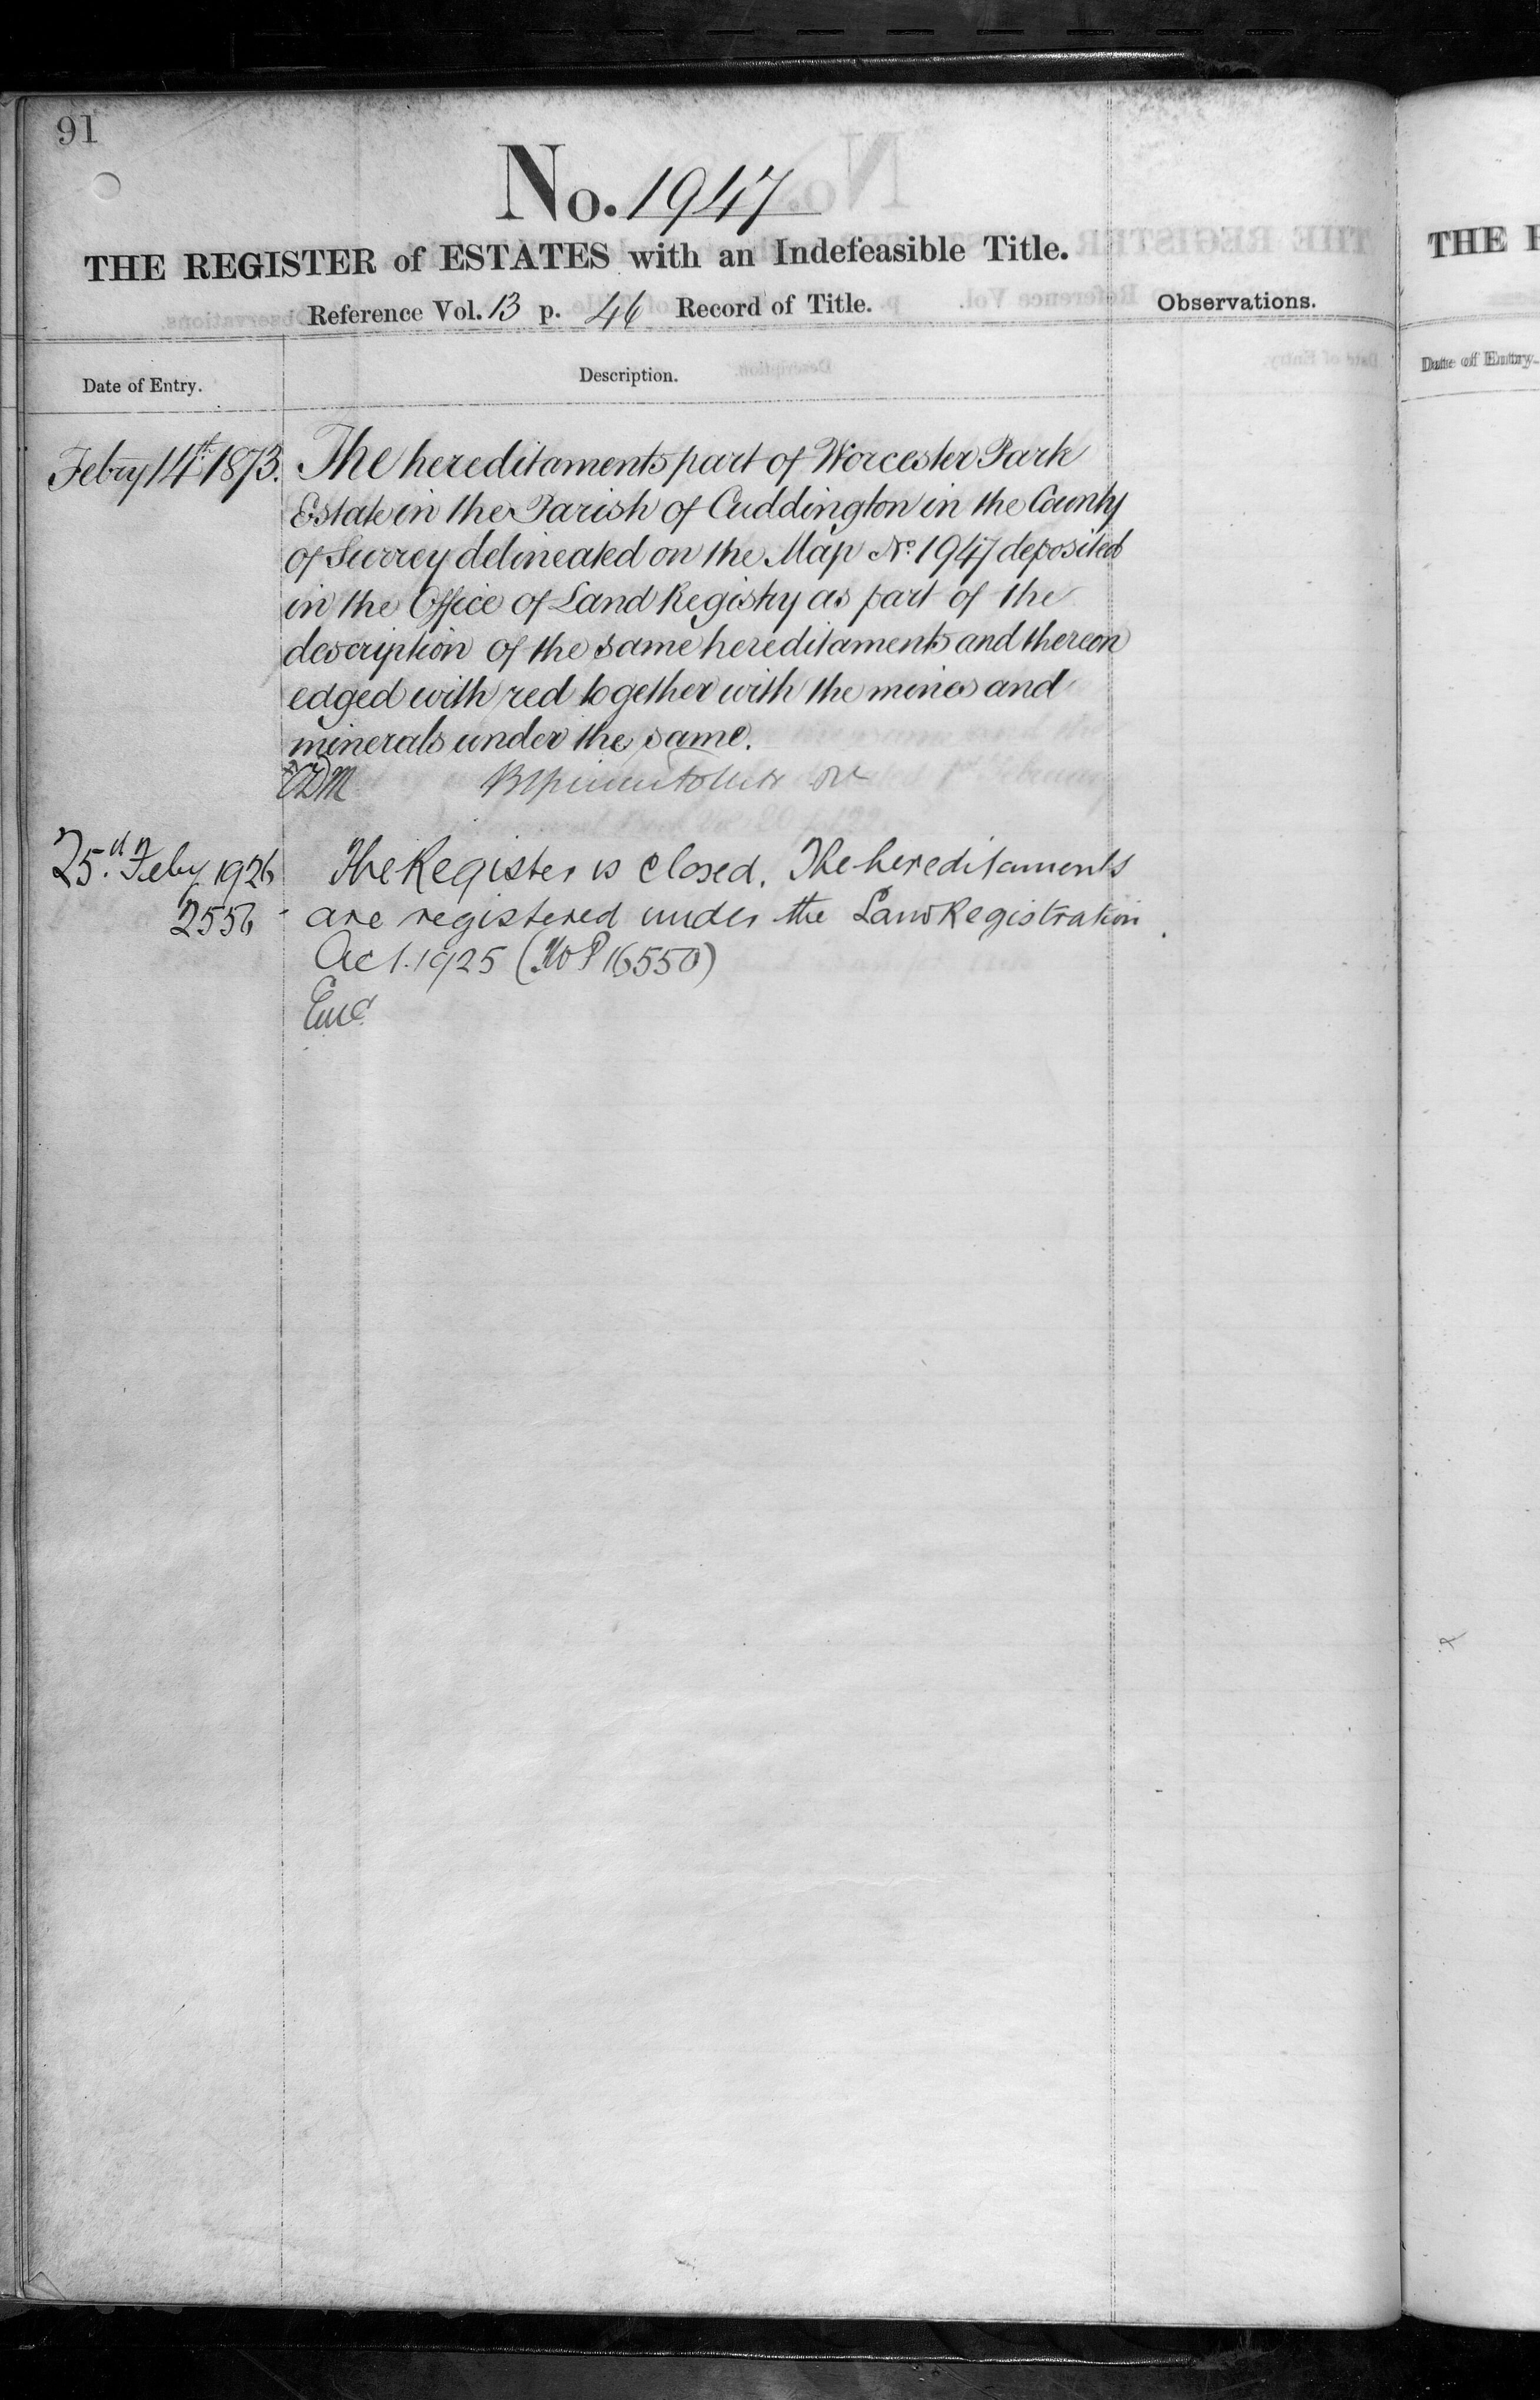 91
No. 1947
THE REGISTER of ESTATES with an Indefeasible Title.
Reference Vol. 13 p. 46 Record of Title.
Observations.
Date of Entry.
Description.
Febry 14th 1873.
The hereditaments part of Worcester Park
Estate in the Parish of Cuddington in the County
of Surrey delineated on the Map No. 1947 deposited
in the Office of Land Registry as part of the
description of the same hereditaments and thereon
edged with red together with the mines and
minerals under the same.
25th Feby 1926
The Register is closed. The hereditaments
2556
are registered under the Land Registration
Act. 1925 (No P 16550)
THE
Date of Entry.